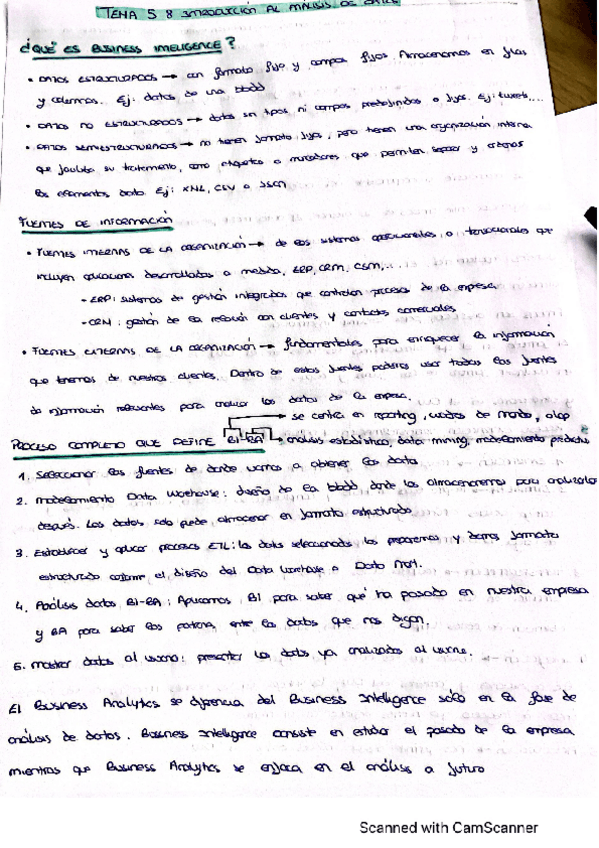 TEMA 5 8 INTRODUCCIÓN AL ANÁLISIS DE DATOS
¿QUÉ ES BUSINESS INTELIGENCE?
• DATOS ESTRUCTURADOS → con formato fijo y campos fijos. Almacenamos en filas
y columnas. Ej: datos de una bbdd
• DATOS NO ESTRUCTURADOS → datos sin tipos ni campos predefinidos o fijos. Ej: tweets....
• DATOS SEMIESTRUCTURADOS → no tienen formato fijo, pero tienen una organización interna
que facilita su tratamiento, como etiquetas o marcadores que permiten separar y
los elementos dato. Ej: XML, CSV o JSON
FUENTES DE INFORMACIÓN
• FUENTES INTERNAS DE LA ORGANIZACIÓN → de los sistemas operacionales o que
incluyen aplicaciones desarrolladas a medida, ERP, CRM, CSM,...
- ERP: sistemas de gestión integrados que controlan procesos de la empresa
- CRM: gestión de la relación con clientes y contactos comerciales
• FUENTES EXTERNAS DE LA ORGANIZACIÓN → fundamentales para enriquecer la información
que tenemos de nuestros clientes. Dentro de estas fuentes podemos usar todas las fuentes
de información relevantes para analizar los datos de la empresa.
→ se centra en reporting, cuadros de mando, olap
PROCESO COMPLETO QUE DEFINE BI-BA → análisis estadístico, data mining, modelamiento predictivo
1. Seleccionar las fuentes de donde vamos a obtener los datos
2. Modelamiento Data Warehouse: diseño de la bbdd donde los almacenaremos para analizarlos
después. Los datos solo puede almacenar en formato estructurado
3. Establecer y aplicar procesos ETL: los datos seleccionados los preparamos y damos formato
estructurado conforme el diseño del Data Warehouse o Data Mart.
4. Análisis datos BI-BA: Aplicamos BI para saber qué ha pasado en nuestra empresa
y BA para saber los patrones entre los datos que nos digan.
5. Mostrar datos al usuario: presentar los datos ya analizados al usuario.
El Business Analytics se diferencia del Business Intelligence sólo en la fase de
análisis de datos. Business Intelligence consiste en estudiar el pasado de la empresa
mientras que Business Analytics se enfoca en el análisis a futuro
Scanned with CamScanner